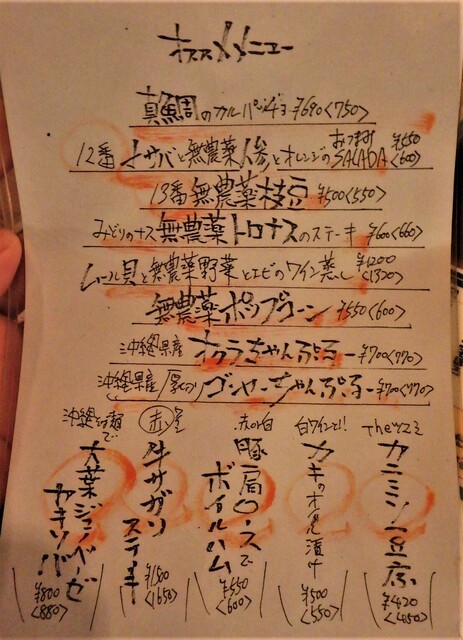 オススメメニュー
真鯛のカルパッチョ ¥690<750>
12番 トサバと無農薬人参とオレンジのおつまみSALADA ¥550<600>
13番 無農薬枝豆 ¥500<550>
みどりのナス 無農薬トロナスのステーキ ¥600<660>
ムール貝と無農薬野菜とエビのワイン蒸し ¥1200<1320>
無農薬ポップコーン ¥550<600>
沖縄県産 オクラちゃんぷるー ¥700<770>
沖縄県産 厚切りゴーヤーちゃんぷるー ¥700<770>
theツマミ カニミソ豆腐 ¥420<450>
白ワインと!! カキのオイル漬け ¥500<550>
赤or白 豚肩ロースでボイルハム ¥550<600>
赤 牛サガリステーキ ¥1500<1650>
沖縄そば麺で 大葉ジェノベーゼヤキソバ!! ¥800<880>